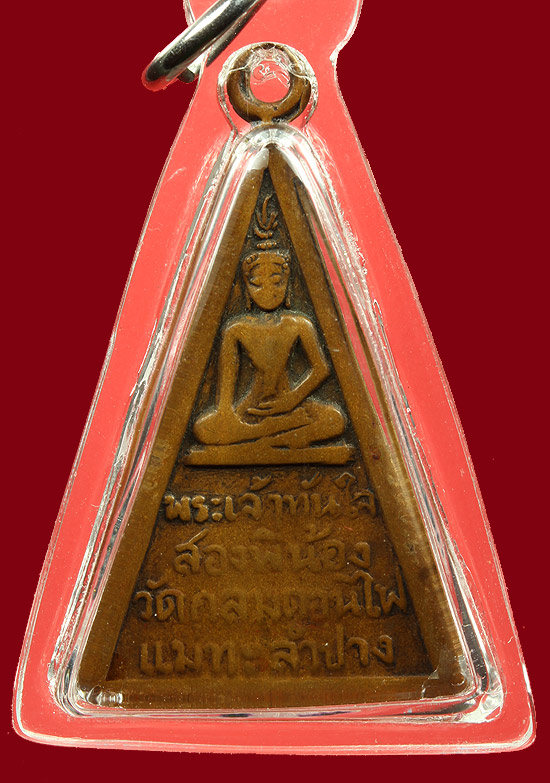 พระเจ้าทันใจ
สองพี่น้อง
วัดดอนไฟ
แมทะลำปาง